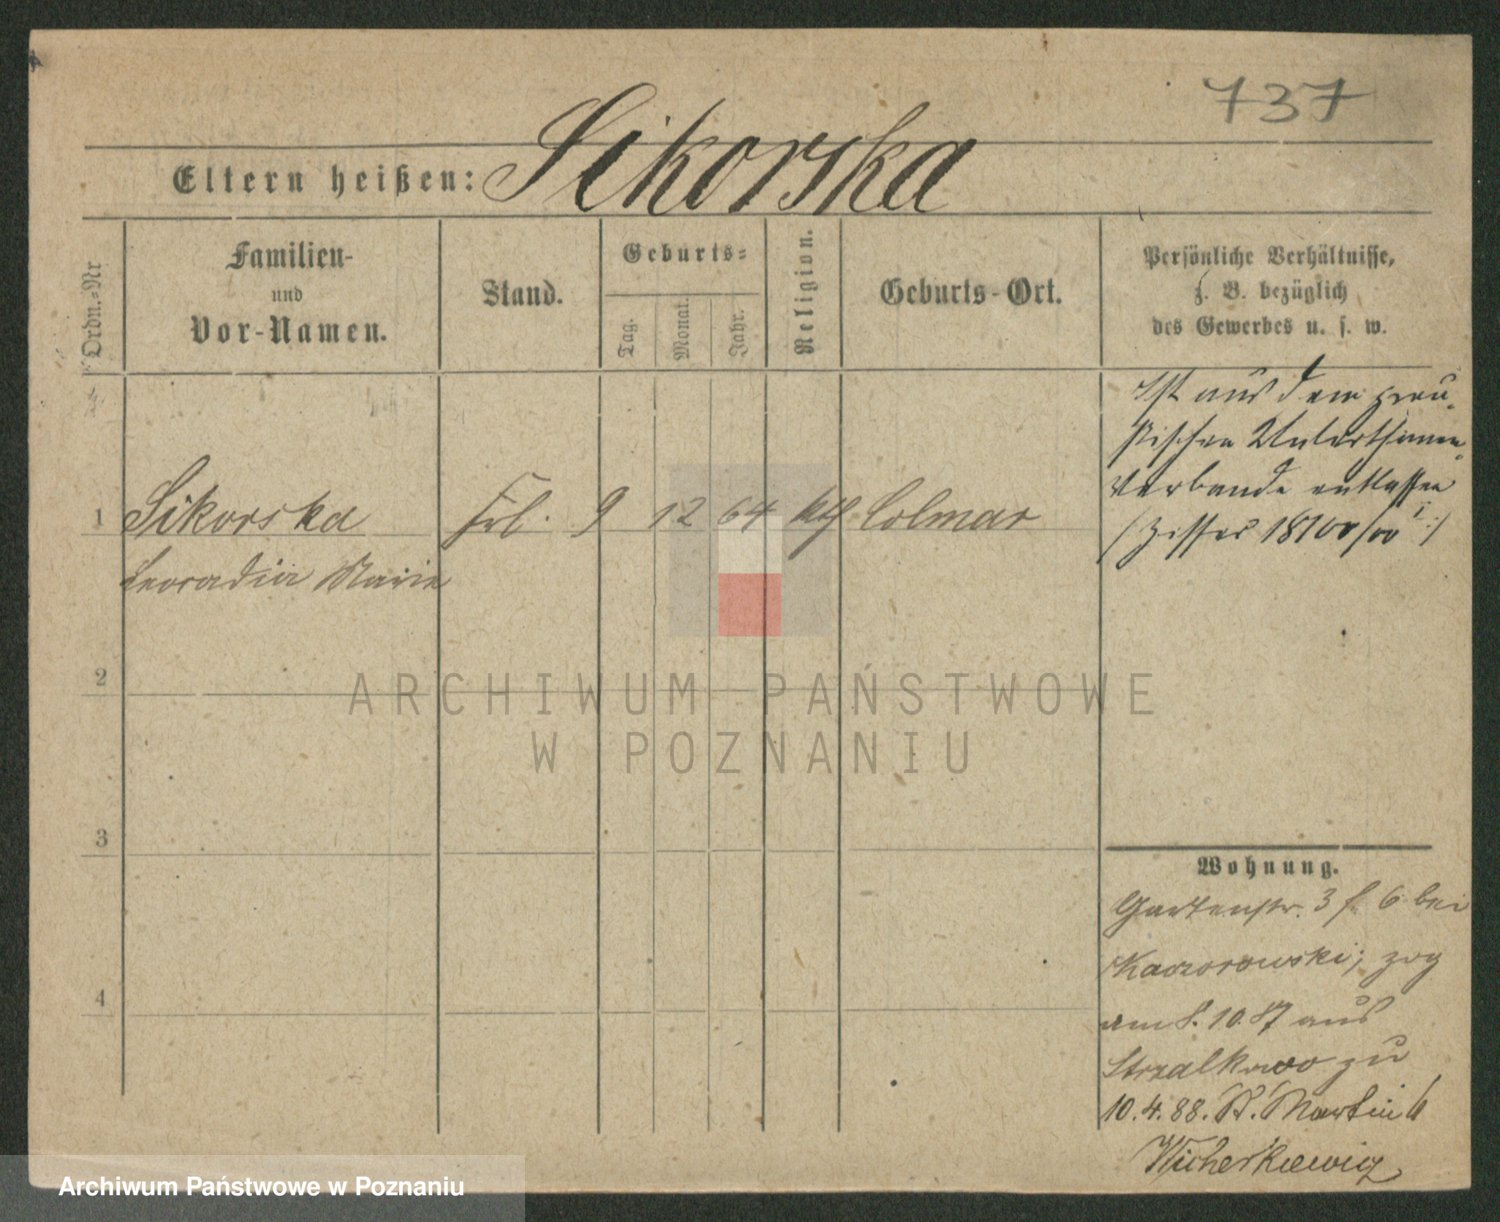 737
Eltern heißen: Sikorska
Ordn.=Nr
Familien-
und
Vor-Namen.
Stand.
Geburts=
Tag.
Monat.
Jahr.
Religion.
Geburts-Ort.
Persönliche Verhältnisse,
z. B. bezüglich
des Gewerbes u. s. w.
1 Sikorska Frl. 9 12 64 kth Colmar
Leocadia Marie
Ist aus dem preu-
ßischen Unterthanen-
Verbande entlassen
2
3
4
Wohnung.
Gartenstr. 3 f. 6 bei
Kaczorowski; zog
am 8. 10. 87 aus
Strzalkowo zu
10. 4. 88. St. Martin 6
Wicherkiewicz
ARCHIWUM PAŃSTWOWE
W POZNANIU
Archiwum Państwowe w Poznaniu